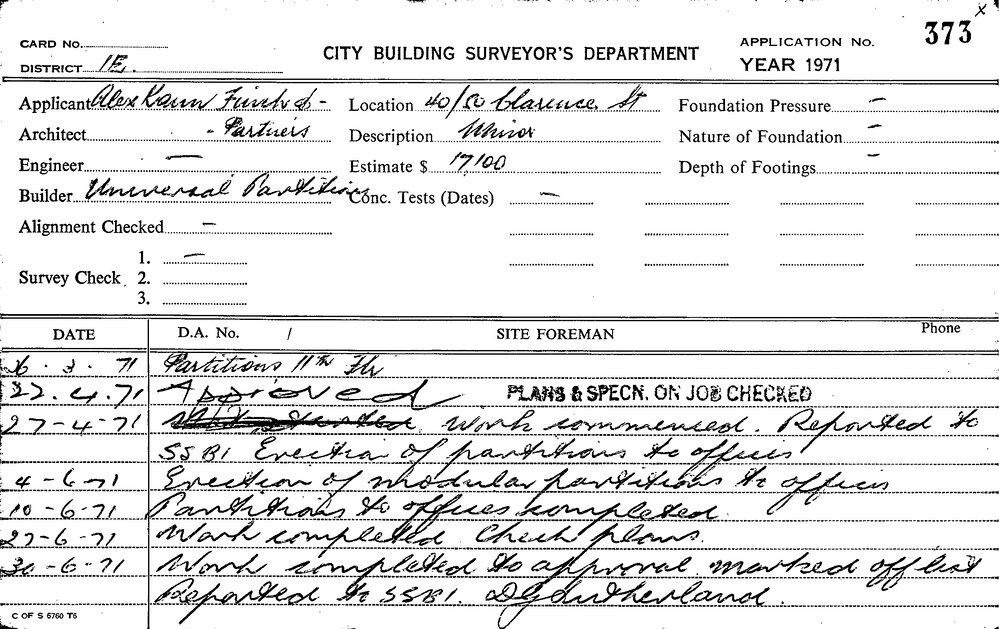 x
CARD No.
CITY BUILDING SURVEYOR'S DEPARTMENT
APPLICATION No. 373
DISTRICT 1E.
YEAR 1971
Applicant Alex Kann Finch & -
Location 40/50 Clarence St
Foundation Pressure —
Architect - Partners
Description Minor
Nature of Foundation —
Engineer —
Estimate $ 17,100
Depth of Footings —
Builder Universal Partitions
Conc. Tests (Dates) —
Alignment Checked —
Survey Check 1. —
2.
3.
DATE D.A. No. / SITE FOREMAN Phone
26.3.71 Partitions 11th Flr
22.4.71 Approved PLANS & SPECN. ON JOB CHECKED
27-4-71 Work commenced. Reported to
SSBI Erection of partitions to offices
4-6-71 Erection of modular partitions to offices
10-6-71 Partitions to offices completed.
27-6-71 Work completed Check plans.
30-6-71 Work completed to approval marked off list
Reported to SSBI. DGSutherland.
C OF S 6760 T6